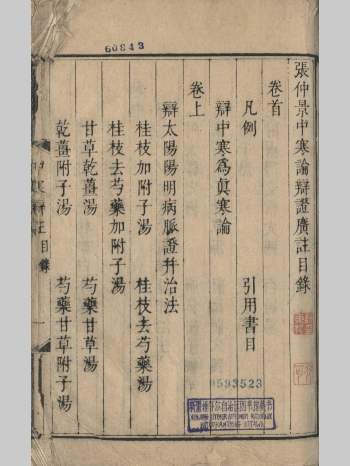 60843
張仲景中寒論辯證廣註目錄
卷首
凡例　引用書目
辯中寒爲眞寒論
卷上
辯太陽陽明病脈證幷治法
桂枝加附子湯　桂枝去芍藥湯
桂枝去芍藥加附子湯
甘草乾薑湯　芍藥甘草湯
乾薑附子湯　芍藥甘草附子湯
0593523